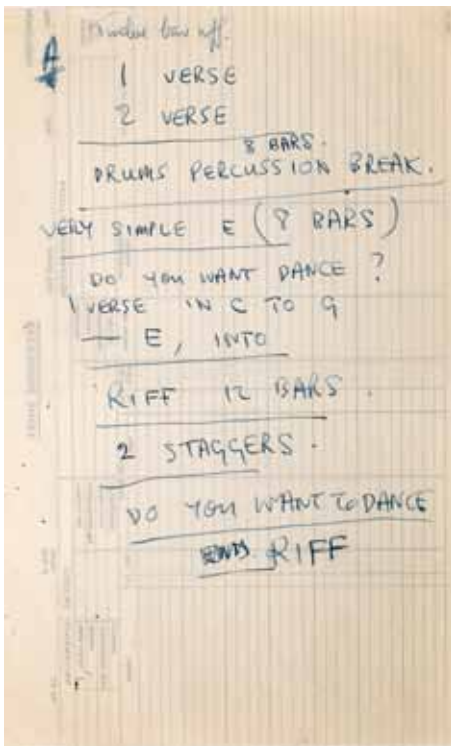 A
1 VERSE
2 VERSE
8 BARS.
DRUMS PERCUSSION BREAK.
VERY SIMPLE E (8 BARS)
DO YOU WANT DANCE ?
1 VERSE IN C TO G
— E, INTO
RIFF 12 BARS.
2 STAGGERS.
DO YOU WANT TO DANCE
ENDS RIFF